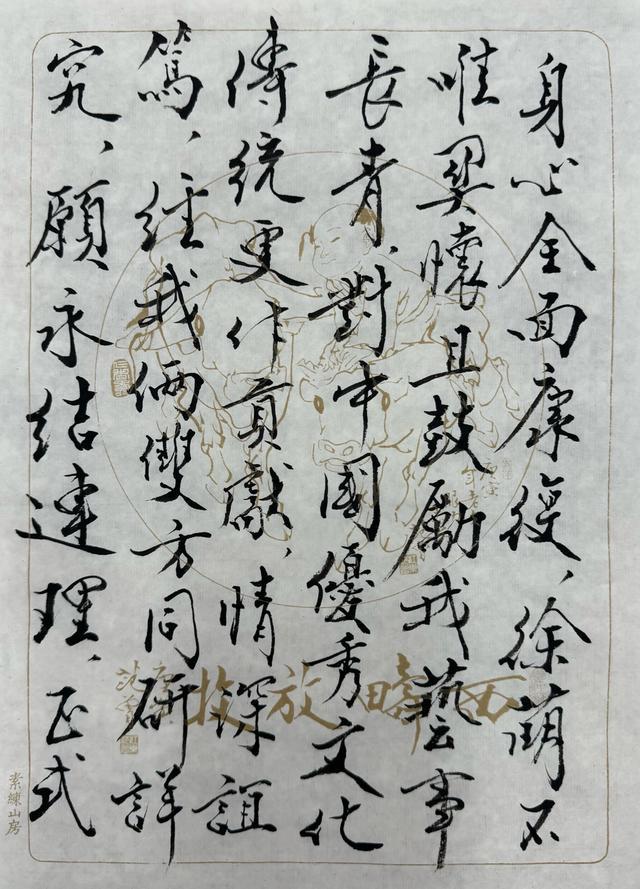 身心全面康復，徐萌不
唯契懷且鼓勵我藝事
長青，對中國優秀文化
傳統更作貢獻，情深誼
篤，經我倆雙方同研詳
究，願永结連理，正式
西疇放牧
素練山房